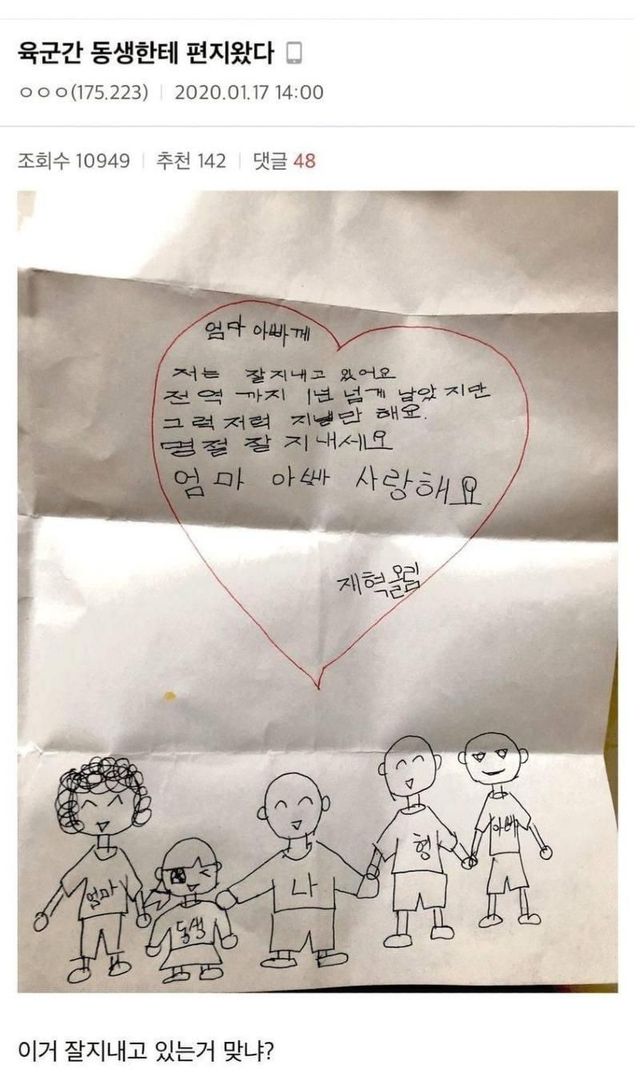 육군간 동생한테 편지왔다
ㅇㅇㅇ(175.223) | 2020.01.17 14:00
조회수 10949 | 추천 142 | 댓글 48
엄마 아빠께
저는 잘지내고 있어요
전역 까지 1년 넘게 남았지만
그럭저럭 지낼만 해요.
명절 잘 지내세요
엄마 아빠 사랑해요
재혁올림
엄마 동생 나 형 아빠
이거 잘지내고 있는거 맞냐?